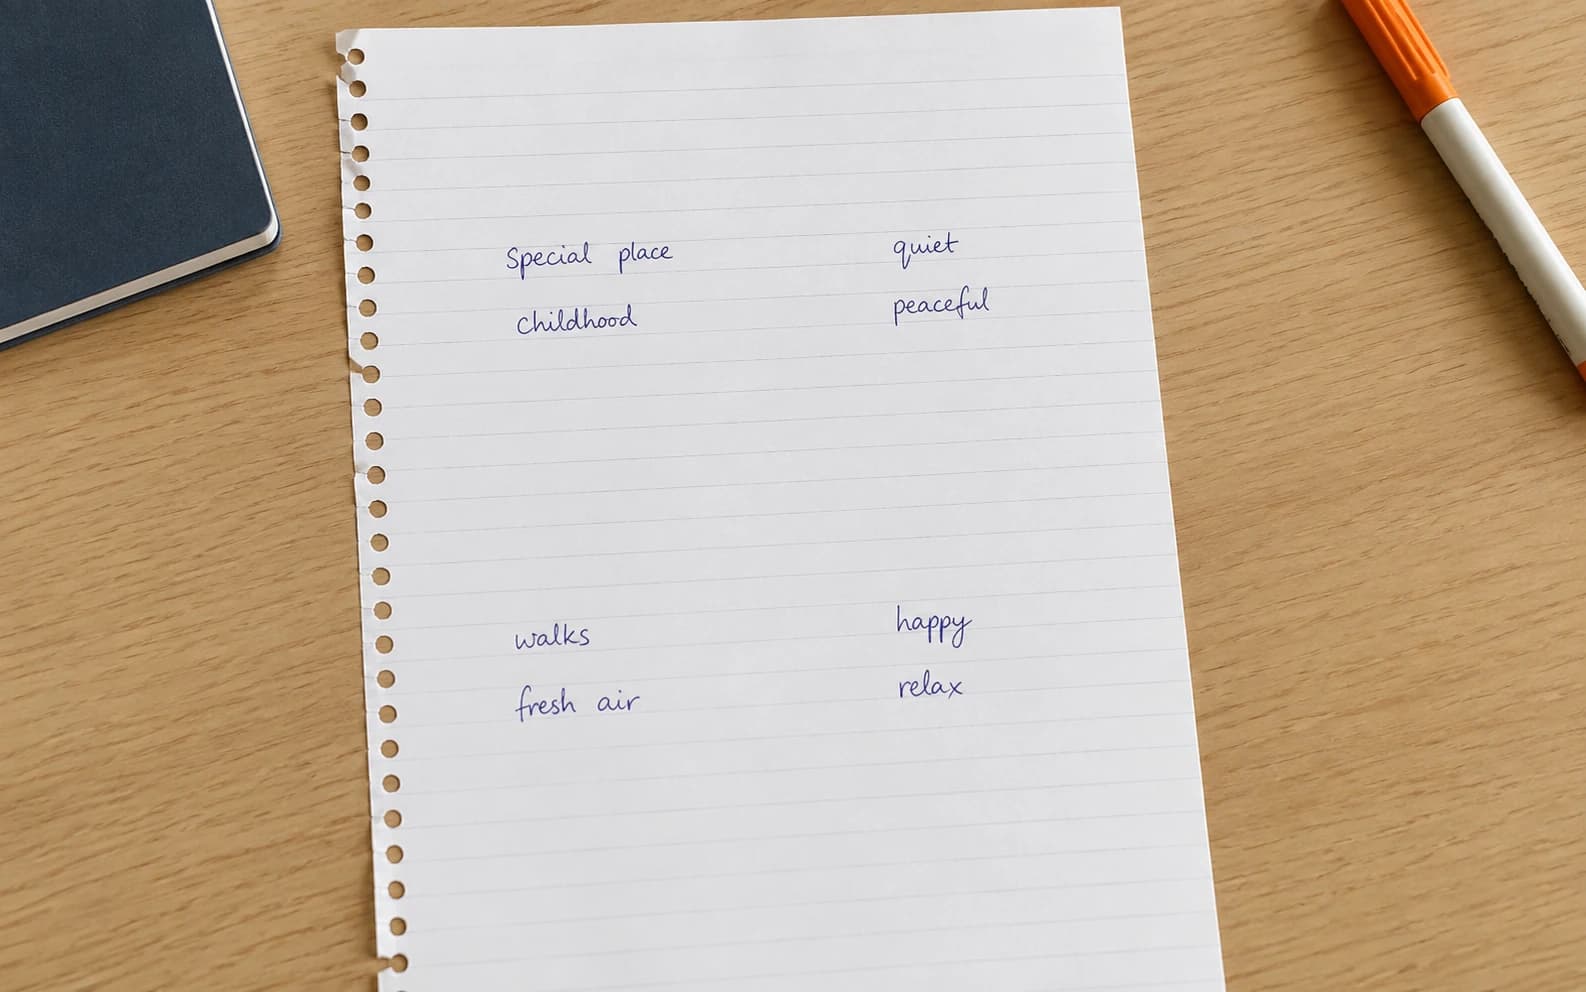 Special place
childhood
quiet
peaceful
walks
fresh air
happy
relax